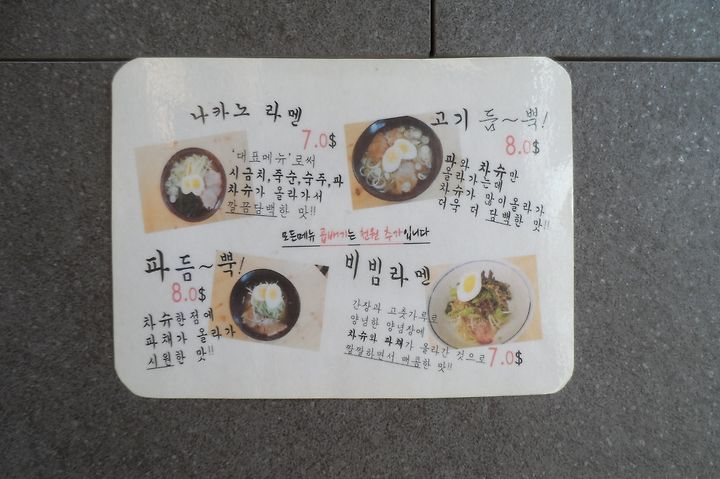 나카노 라멘
7.0$
'대표메뉴'로써
시금치,죽순,숙주,파
차슈가 올라가서
깔끔담백한 맛!!
고기 듬~뿍!
8.0$
파와 차슈만
올라가는데
차슈가 많이올라가
더욱 더 담백한 맛!!
모든메뉴 곱배기는 천원 추가입니다
파 듬~뿍!
8.0$
차슈한점에
파채가 올라가
시원한 맛!!
비빔라멘
간장과 고춧가루로
양념한 양념장에
차슈와 파채가 올라간 것으로
짭짤하면서 매콤한 맛!!
7.0$